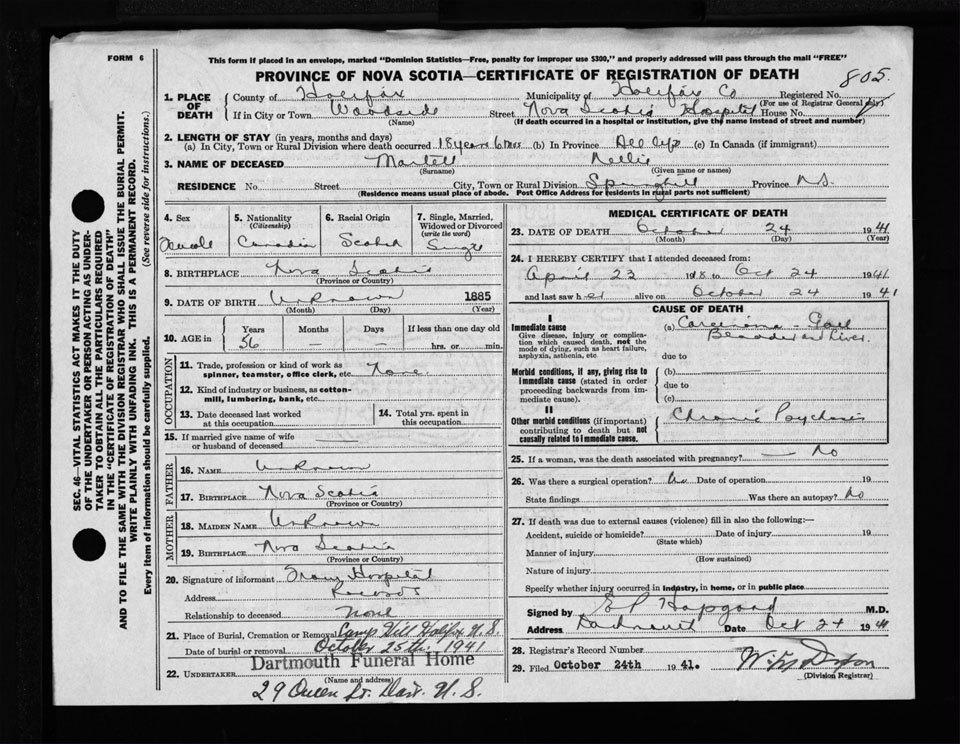 FORM 6
This form if placed in an envelope, marked "Dominion Statistics—Free, penalty for improper use $300," and properly addressed will pass through the mail "FREE"
PROVINCE OF NOVA SCOTIA—CERTIFICATE OF REGISTRATION OF DEATH
805.
1. PLACE OF DEATH
County of Halifax Municipality of Halifax Co Registered No.
(For use of Registrar General only)
If in City or Town Woodside Street Nova Scotia Hospital House No.
(Name) (If death occurred in a hospital or institution, give the name instead of street and number)
2. LENGTH OF STAY (in years, months and days)
(a) In City, Town or Rural Division where death occurred 18 years 6 mos (b) In Province All life (c) In Canada (if immigrant)
3. NAME OF DECEASED Martell Nellie
(Surname) (Given name or names)
RESIDENCE No. Street City, Town or Rural Division Springhill Province N.S.
(Residence means usual place of abode. Post Office Address for residents in rural parts not sufficient)
SEC. 46—VITAL STATISTICS ACT MAKES IT THE DUTY
OF THE UNDERTAKER OR PERSON ACTING AS UNDER-
TAKER TO OBTAIN ALL THE PARTICULARS REQUIRED
IN THE "CERTIFICATE OF REGISTRATION OF DEATH"
AND TO FILE THE SAME WITH THE DIVISION REGISTRAR WHO SHALL ISSUE THE BURIAL PERMIT.
WRITE PLAINLY WITH UNFADING INK. THIS IS A PERMANENT RECORD.
Every item of information should be carefully supplied. (See reverse side for instructions.)
4. Sex 5. Nationality (Citizenship) 6. Racial Origin 7. Single, Married, Widowed or Divorced (write the word)
Female Canadian Scotch Single
8. BIRTHPLACE Nova Scotia
(Province or Country)
9. DATE OF BIRTH Unknown 1885
(Month) (Day) (Year)
10. AGE in Years Months Days If less than one day old
56 — — hrs. or min.
OCCUPATION
11. Trade, profession or kind of work as spinner, teamster, office clerk, etc. None
12. Kind of industry or business, as cotton-mill, lumbering, bank, etc.
13. Date deceased last worked at this occupation
14. Total yrs. spent in this occupation
15. If married give name of wife or husband of deceased —
FATHER
16. NAME Unknown
17. BIRTHPLACE Nova Scotia
(Province or Country)
MOTHER
18. MAIDEN NAME Unknown
19. BIRTHPLACE Nova Scotia
(Province or Country)
20. Signature of informant From Hospital
Address Records
Relationship to deceased None
21. Place of Burial, Cremation or Removal Camp Hill Halifax N.S.
Date of burial or removal October 25th. 1941
Dartmouth Funeral Home
22. UNDERTAKER
(Name and address)
29 Queen St. Dart. N.S.
MEDICAL CERTIFICATE OF DEATH
23. DATE OF DEATH October 24 1941
(Month) (Day) (Year)
24. I HEREBY CERTIFY that I attended deceased from:
April 23 1918 to Oct 24 1941
and last saw her alive on October 24 1941
CAUSE OF DEATH
I
Immediate cause (a) Carcinoma - Gall
Bladder and Liver.
Give disease, injury, or complication which caused death, not the mode of dying, such as heart failure, asphyxia, asthenia, etc
due to
Morbid conditions, if any, giving rise to immediate cause (stated in order proceeding backwards from immediate cause).
(b)
due to
(c)
II
Other morbid conditions (if important) contributing to death but not causally related to immediate cause.
Chronic Psychosis
25. If a woman, was the death associated with pregnancy? — No
26. Was there a surgical operation? No Date of operation 19
State findings Was there an autopsy? No
27. If death was due to external causes (violence) fill in also the following:—
Accident, suicide or homicide? Date of injury 19
(State which)
Manner of injury
(How sustained)
Nature of injury
Specify whether injury occurred in industry, in home, or in public place
Signed by E P Hapgood M.D.
Address Dartmouth Date Oct 24 1941
28. Registrar's Record Number
29. Filed October 24th 1941.
(Division Registrar)